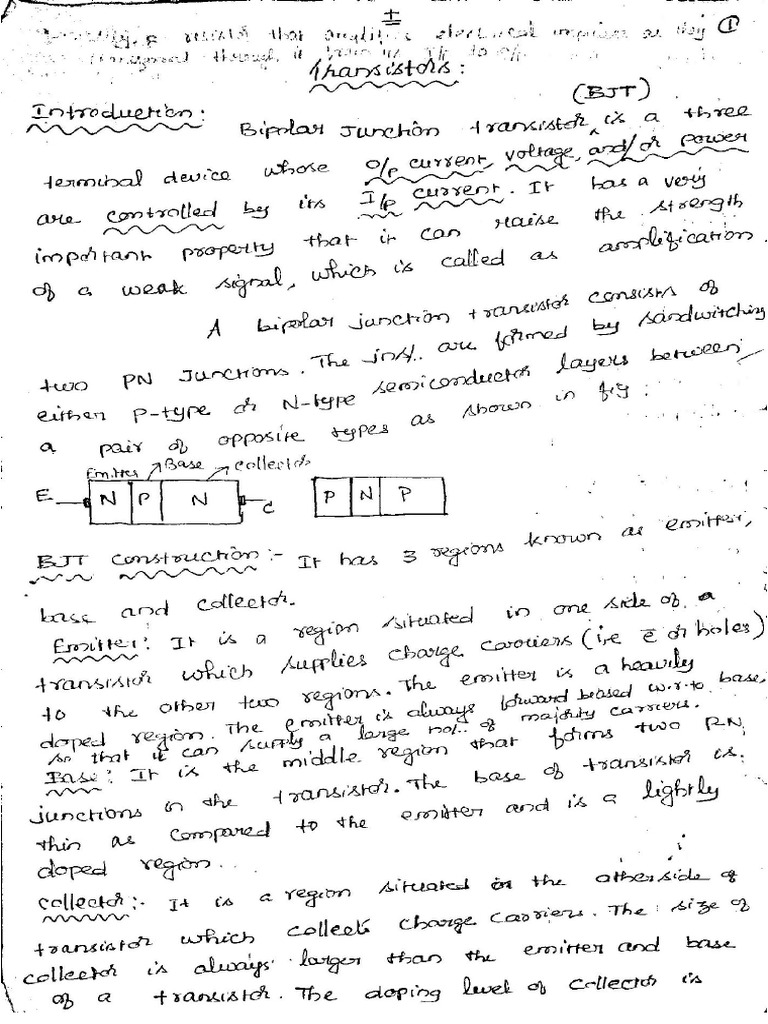 I
①
a resist that amplifies electrical impulses as they
transferred through it
Transistors:
(BJT)
Introduction:
Bipolar Junction transistor ^ is a three
terminal device whose o/p current, voltage, and/or power
are controlled by its I/p current. It has a very
important property that it can raise the strength
of a weak signal, which is called as amplification.
A bipolar junction transistor consists of
two PN Junctions. The jns/.. are formed by sandwitching
either P-type or N-type semiconductor layers between
a pair of opposite types as shown in fig:
Emitter Base collector
E N P N C P N P
BJT Construction:- It has 3 regions known as emitter,
base and collector.
Emitter: It is a region situated in one side of a
transistor which supplies charge carriers (i.e e̅ or holes)
to the other two regions. The emitter is a heavily
doped region. The emitter is always forward biased w.r.to base,
so that it can supply a large no/.. of majority carriers.
Base: It is the middle region that forms two PN
junctions in the transistor. The base of transistor is
thin as compared to the emitter and is a lightly
doped region...
Collector:- It is a region situated in the otherside of
transistor which collects charge carriers. The size of
collector is always larger than the emitter and base
of a transistor. The doping level of collector is